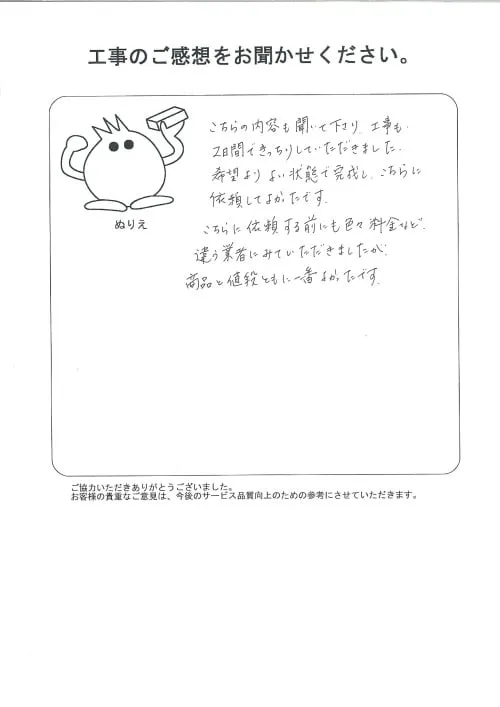 工事のご感想をお聞かせください。
こちらの内容も聞いて下さり、工事も、
2日間できっちりしていただきました。
希望よりよい状態で完成し、こちらに
依頼してよかたです。
ぬりえ
こちらに依頼する前にも色々料金など、
違う業者にみていただきましたが、
商品と値段ともに一番よかったです。
ご協力いただきありがとうございました。
お客様の貴重なご意見は、今後のサービス品質向上のための参考にさせていただきます。